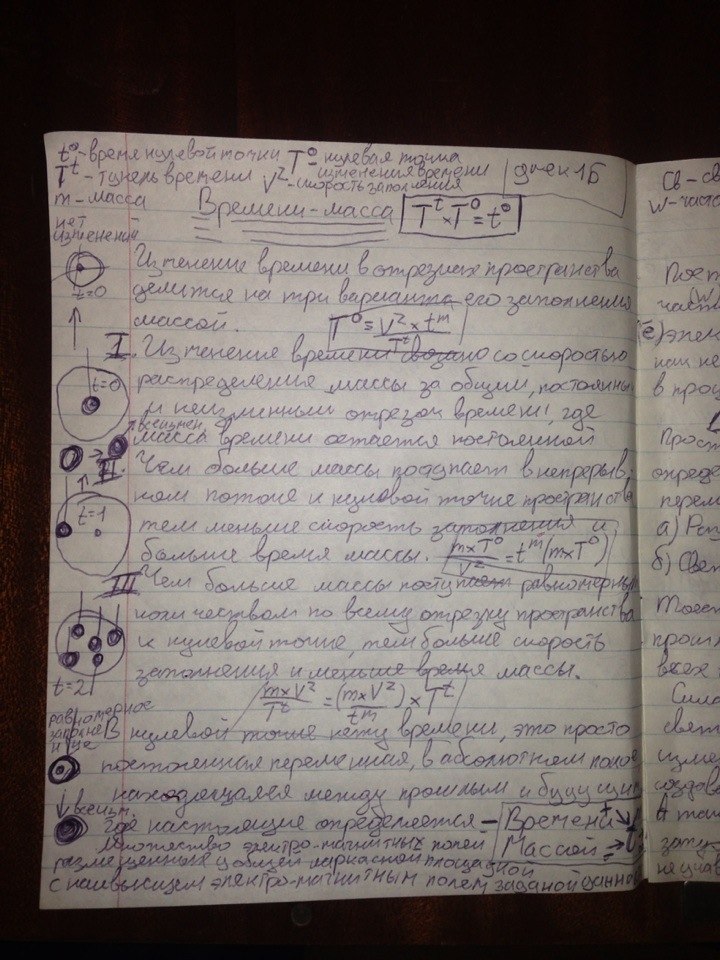 t⁰-время нулевой точки T⁰- нулевая точка
изменения времени
Tᵗ- тунель времени V²-скорость заполнения
m-масса
Времени-масса Tᵗ×T⁰=t⁰
нет
изменений
Изменение времени в отрезках пространства
t=0
делится на три варианта его заполнения
массой. T⁰=V²×tᵐ/Tᵗ
I. Изменение времени связано со скоростью
t=0
распределения массы за общий, постоянный
и неизменный отрезок времени, где
масса времени остается постоянной
II. Чем больше массы поступает в непрерыв-
ном потоке к нулевой точке пространства
t=1
тем меньше скорость заполнения и
больше время массы. m×T⁰/V²=tᵐ(m×T⁰)
III Чем больше массы поступает равномерным
количеством по всему отрезку пространства
к нулевой точке, тем больше скорость
t=2
заполнения и меньше время массы.
m×V²/Tᵗ=(m×V²)/tᵐ×Tᵗ
равномерное
В нулевой точке нету времени, это просто
постоянная переменная, в абсолютном покое
находящаяся между прошлым и будущим
Где настоящие определяется - Времени
множество электро-магнитных полей Массой
размещенные общей каркасной площадкой
с наивысшем электро-магнитным полем заданой
Св-
Прост
опреде
перем
а) Раз
б) Свет
прош
всех
Сила
свет
изме
создав
А так